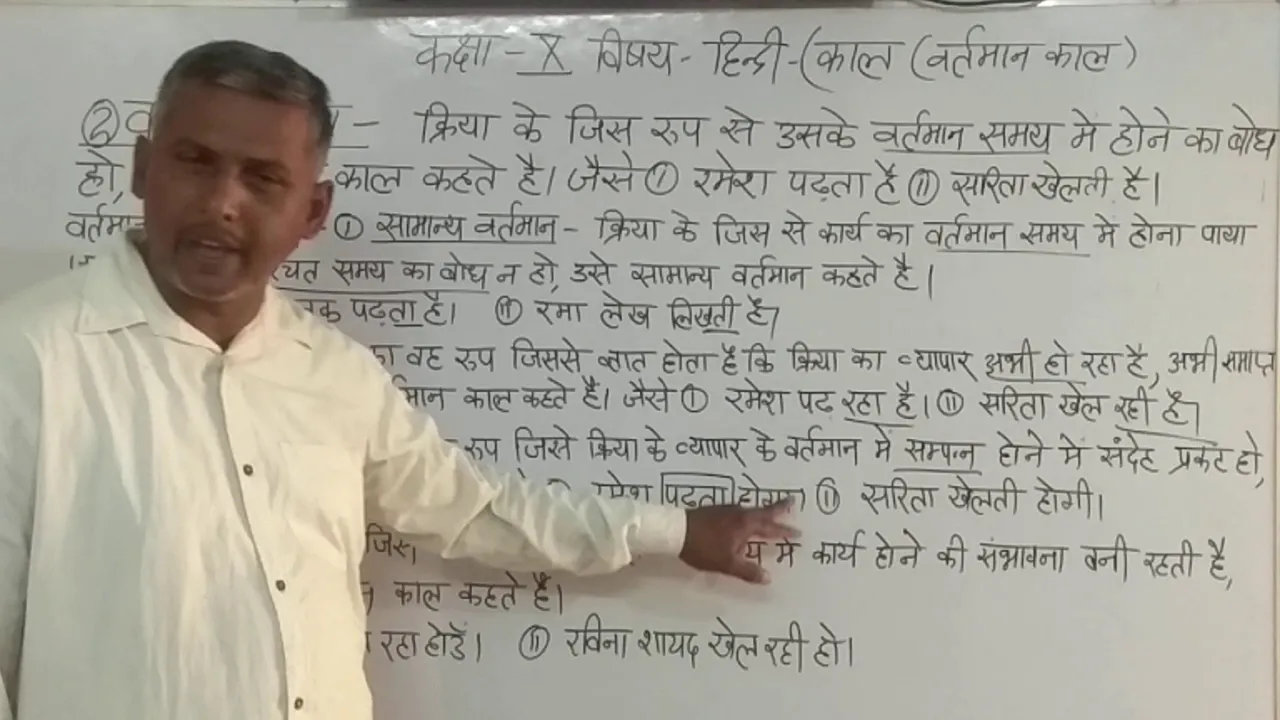 कक्षा - X विषय - हिन्दी - (काल (वर्तमान काल)
② - क्रिया के जिस रुप से उसके वर्तमान समय में होने का बोध
हो, काल कहते है। जैसे ① रमेश पढ़ता है ⑪ सरिता खेलती है।
① सामान्य वर्तमान - क्रिया के जिस से कार्य का वर्तमान समय मे होना पाया
समय का बोध न हो, उसे सामान्य वर्तमान कहते है।
पढ़ता है। ⑪ रमा लेख लिखती है।
वह रुप जिससे ज्ञात होता है कि क्रिया का व्यापार अभी हो रहा है, अभी समाप्त
काल कहते है। जैसे ① रमेश पढ़ रहा है। ⑪ सरिता खेल रही है।
रुप जिसे क्रिया के व्यापार के वर्तमान में सम्पन्न होने में संदेह प्रकट हो,
पढ़ता ⑪ सरिता खेलती होगी।
मे कार्य होने की संभावना बनी रहती है,
काल कहते है।
रहा होऊँ। ⑪ रविना शायद खेल रही हो।